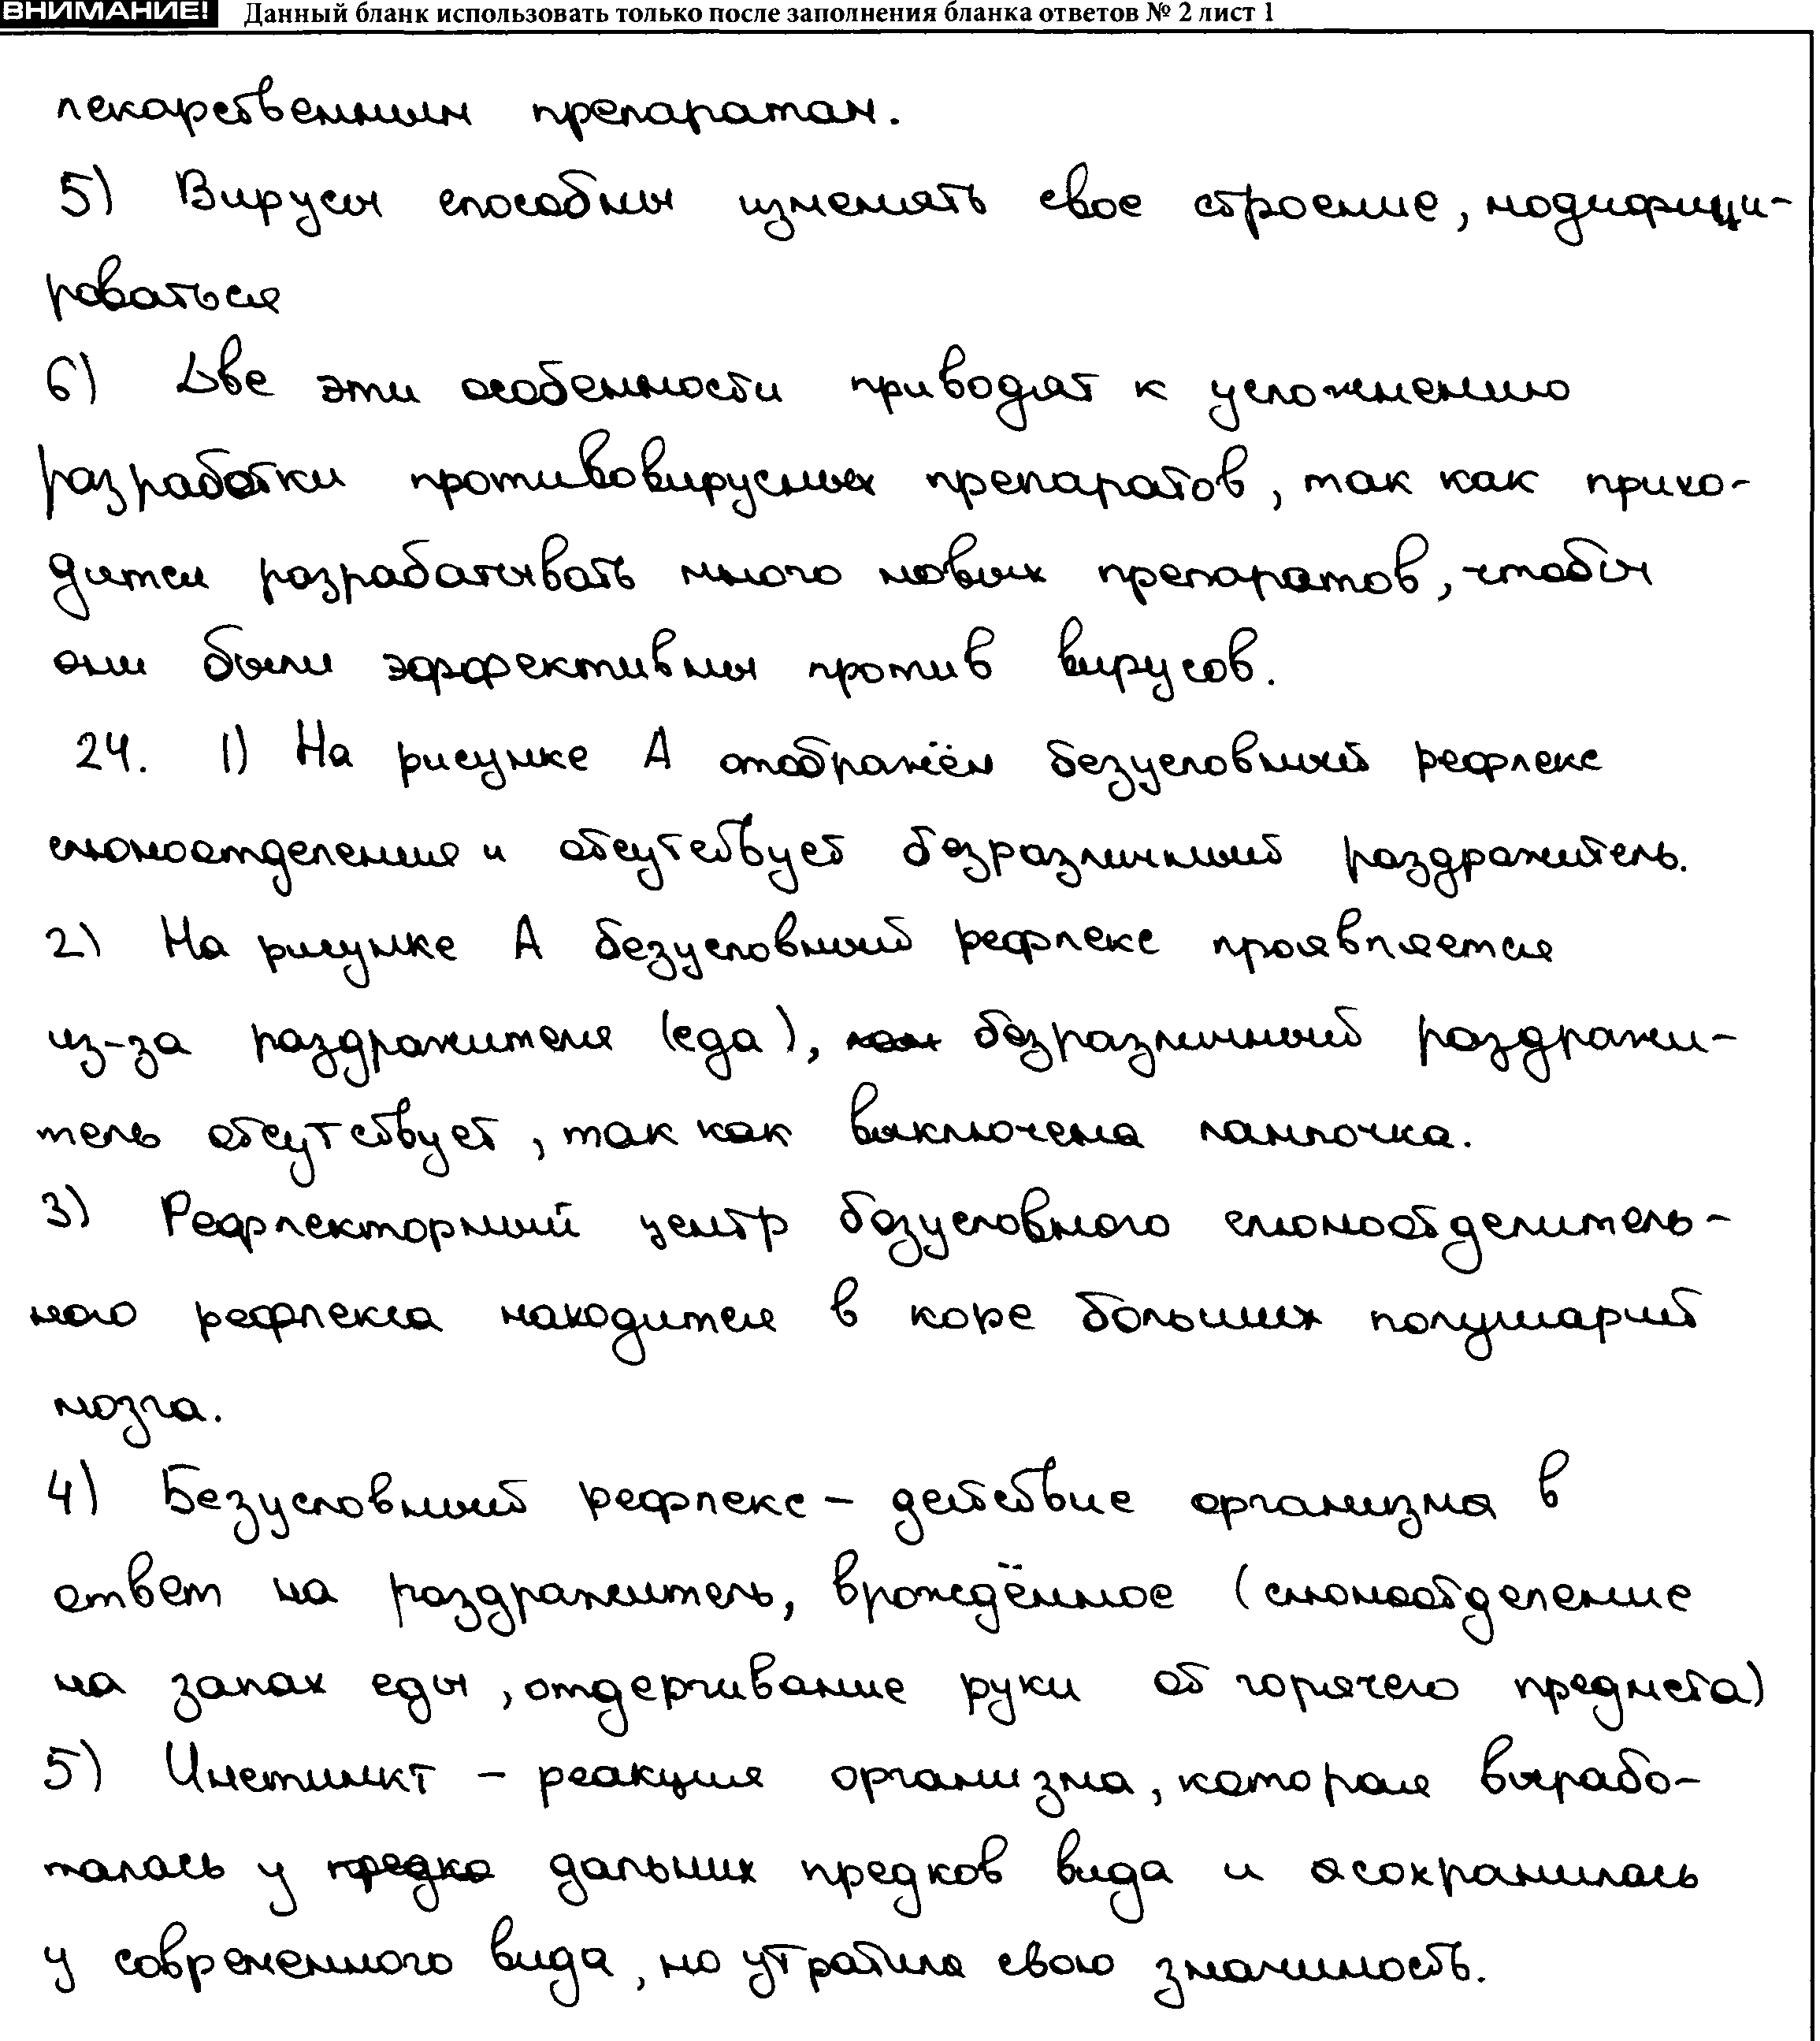 ВНИМАНИЕ! Данный бланк использовать только после заполнения бланка ответов № 2 лист 1
лекарственным препаратам.
5) Вирусы способны изменять свое строение, модифици-
роваться
6) Две эти особенности приводят к усложнению
разработки противовирусных препаратов, так как прихо-
дится разрабатывать много новых препаратов, чтобы
они были эффективны против вирусов.
24. 1) На рисунке А отображён безусловный рефлекс
слюноотделения и отсутствует безразличный раздражитель.
2) На рисунке А безусловный рефлекс проявляется
из-за раздражителя (еда), безразличный раздражи-
тель отсутствует, так как выключена лампочка.
3) Рефлекторный центр безусловного слюноотделитель-
ного рефлекса находится в коре больших полушарий
мозга.
4) Безусловный рефлекс - действие организма в
ответ на раздражитель, врождённое (слюноотделение
на запах еды, отдергивание руки от горячего предмета)
5) Инстинкт - реакция организма, которая вырабо-
талась у предка дальних предков вида и сохранилась
у современного вида, но утратила свою значимость.